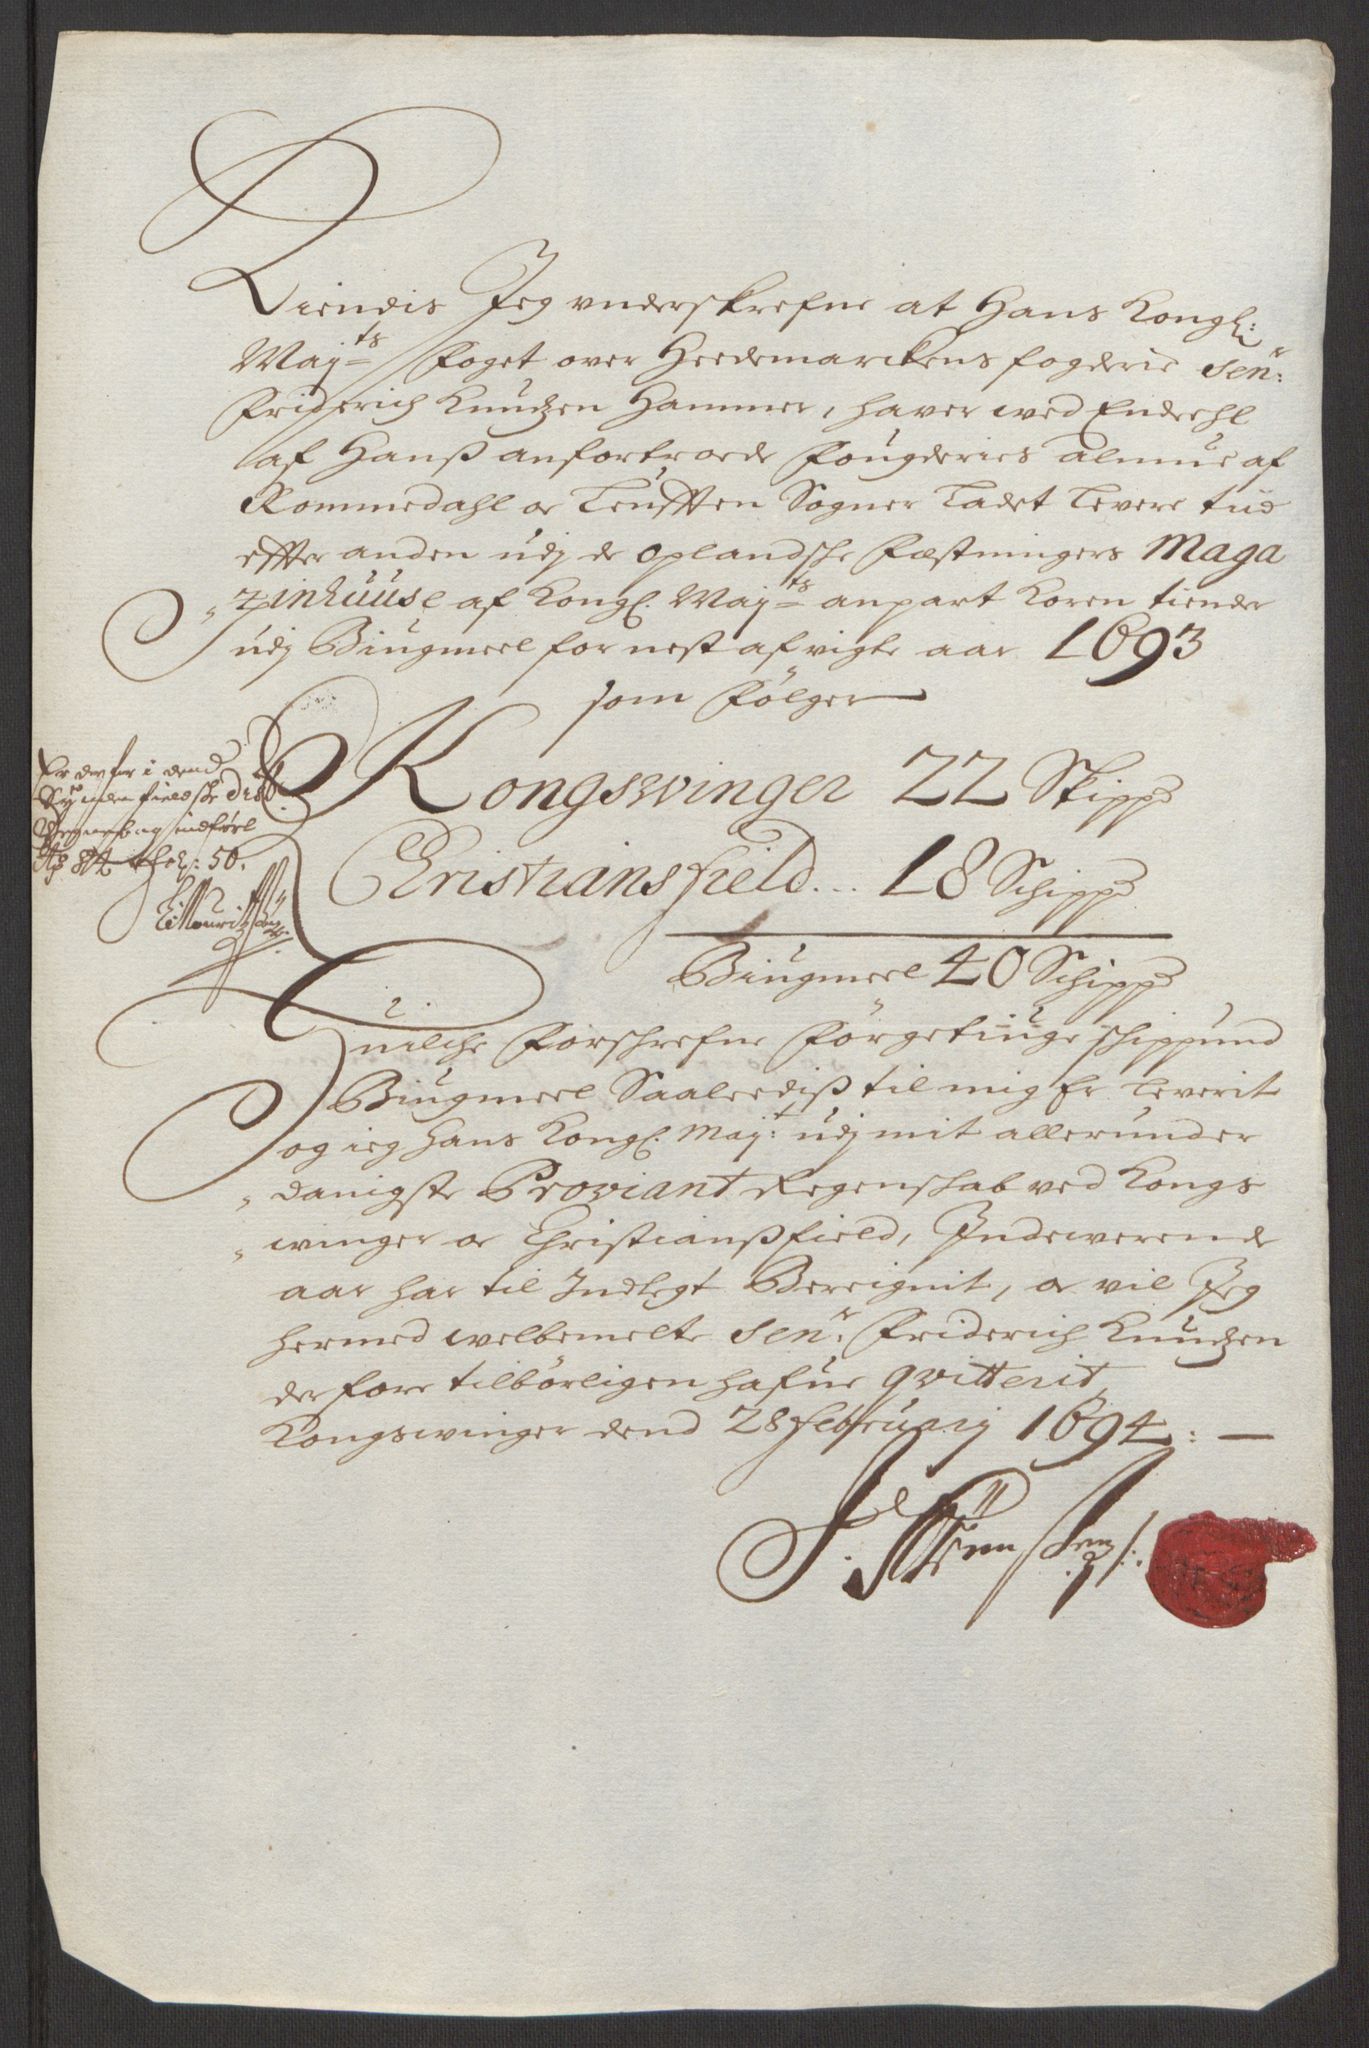 Kiendis Jeg underskrefne at Hans Kongl:
Mayts Foget over Heedemarckens fogderie Senr:
Friderich Knudzen Hammer, haver wed Endeehl
af Hanß anfortroede Fougderies almue af
Rommedahl oc Leutten Sogner ladet levere tiid
effter anden udj de oplandsche Fæstningers Maga
„zinhuuse af Kongl. Mayts anpart Koren tiender
udj Biugmeel for nest afvigte aar 1693
som Følger
Kongswinger 22 Skippd
Christiansfield... 18 Schippd
Biugmeel 40 Schippd
Er derfor i dend
Syndenfieldsche
indført
50.
Huilche Forschrefne Førgetiuge schippund
Biugmeel Saaleediß til mig Er leverit
og ieg hans Kongl. Mayt: udj mit allerunder
„danigste Proviant Regenschab ved Kongs
„winger oc Christianßfield, Indewerende
aar har til Indtegt Bereignit, oc vil Jeg
hermed welbemelte Senr: Friderich Knudzen
derfore tilbørligen hafue qvitterit,
Kongswinger dend 28 februarij 1694: —